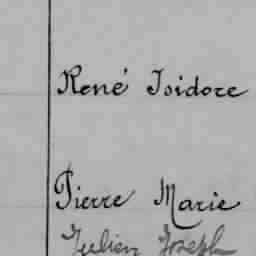 René Isidore
Pierre Marie
Julien Joseph